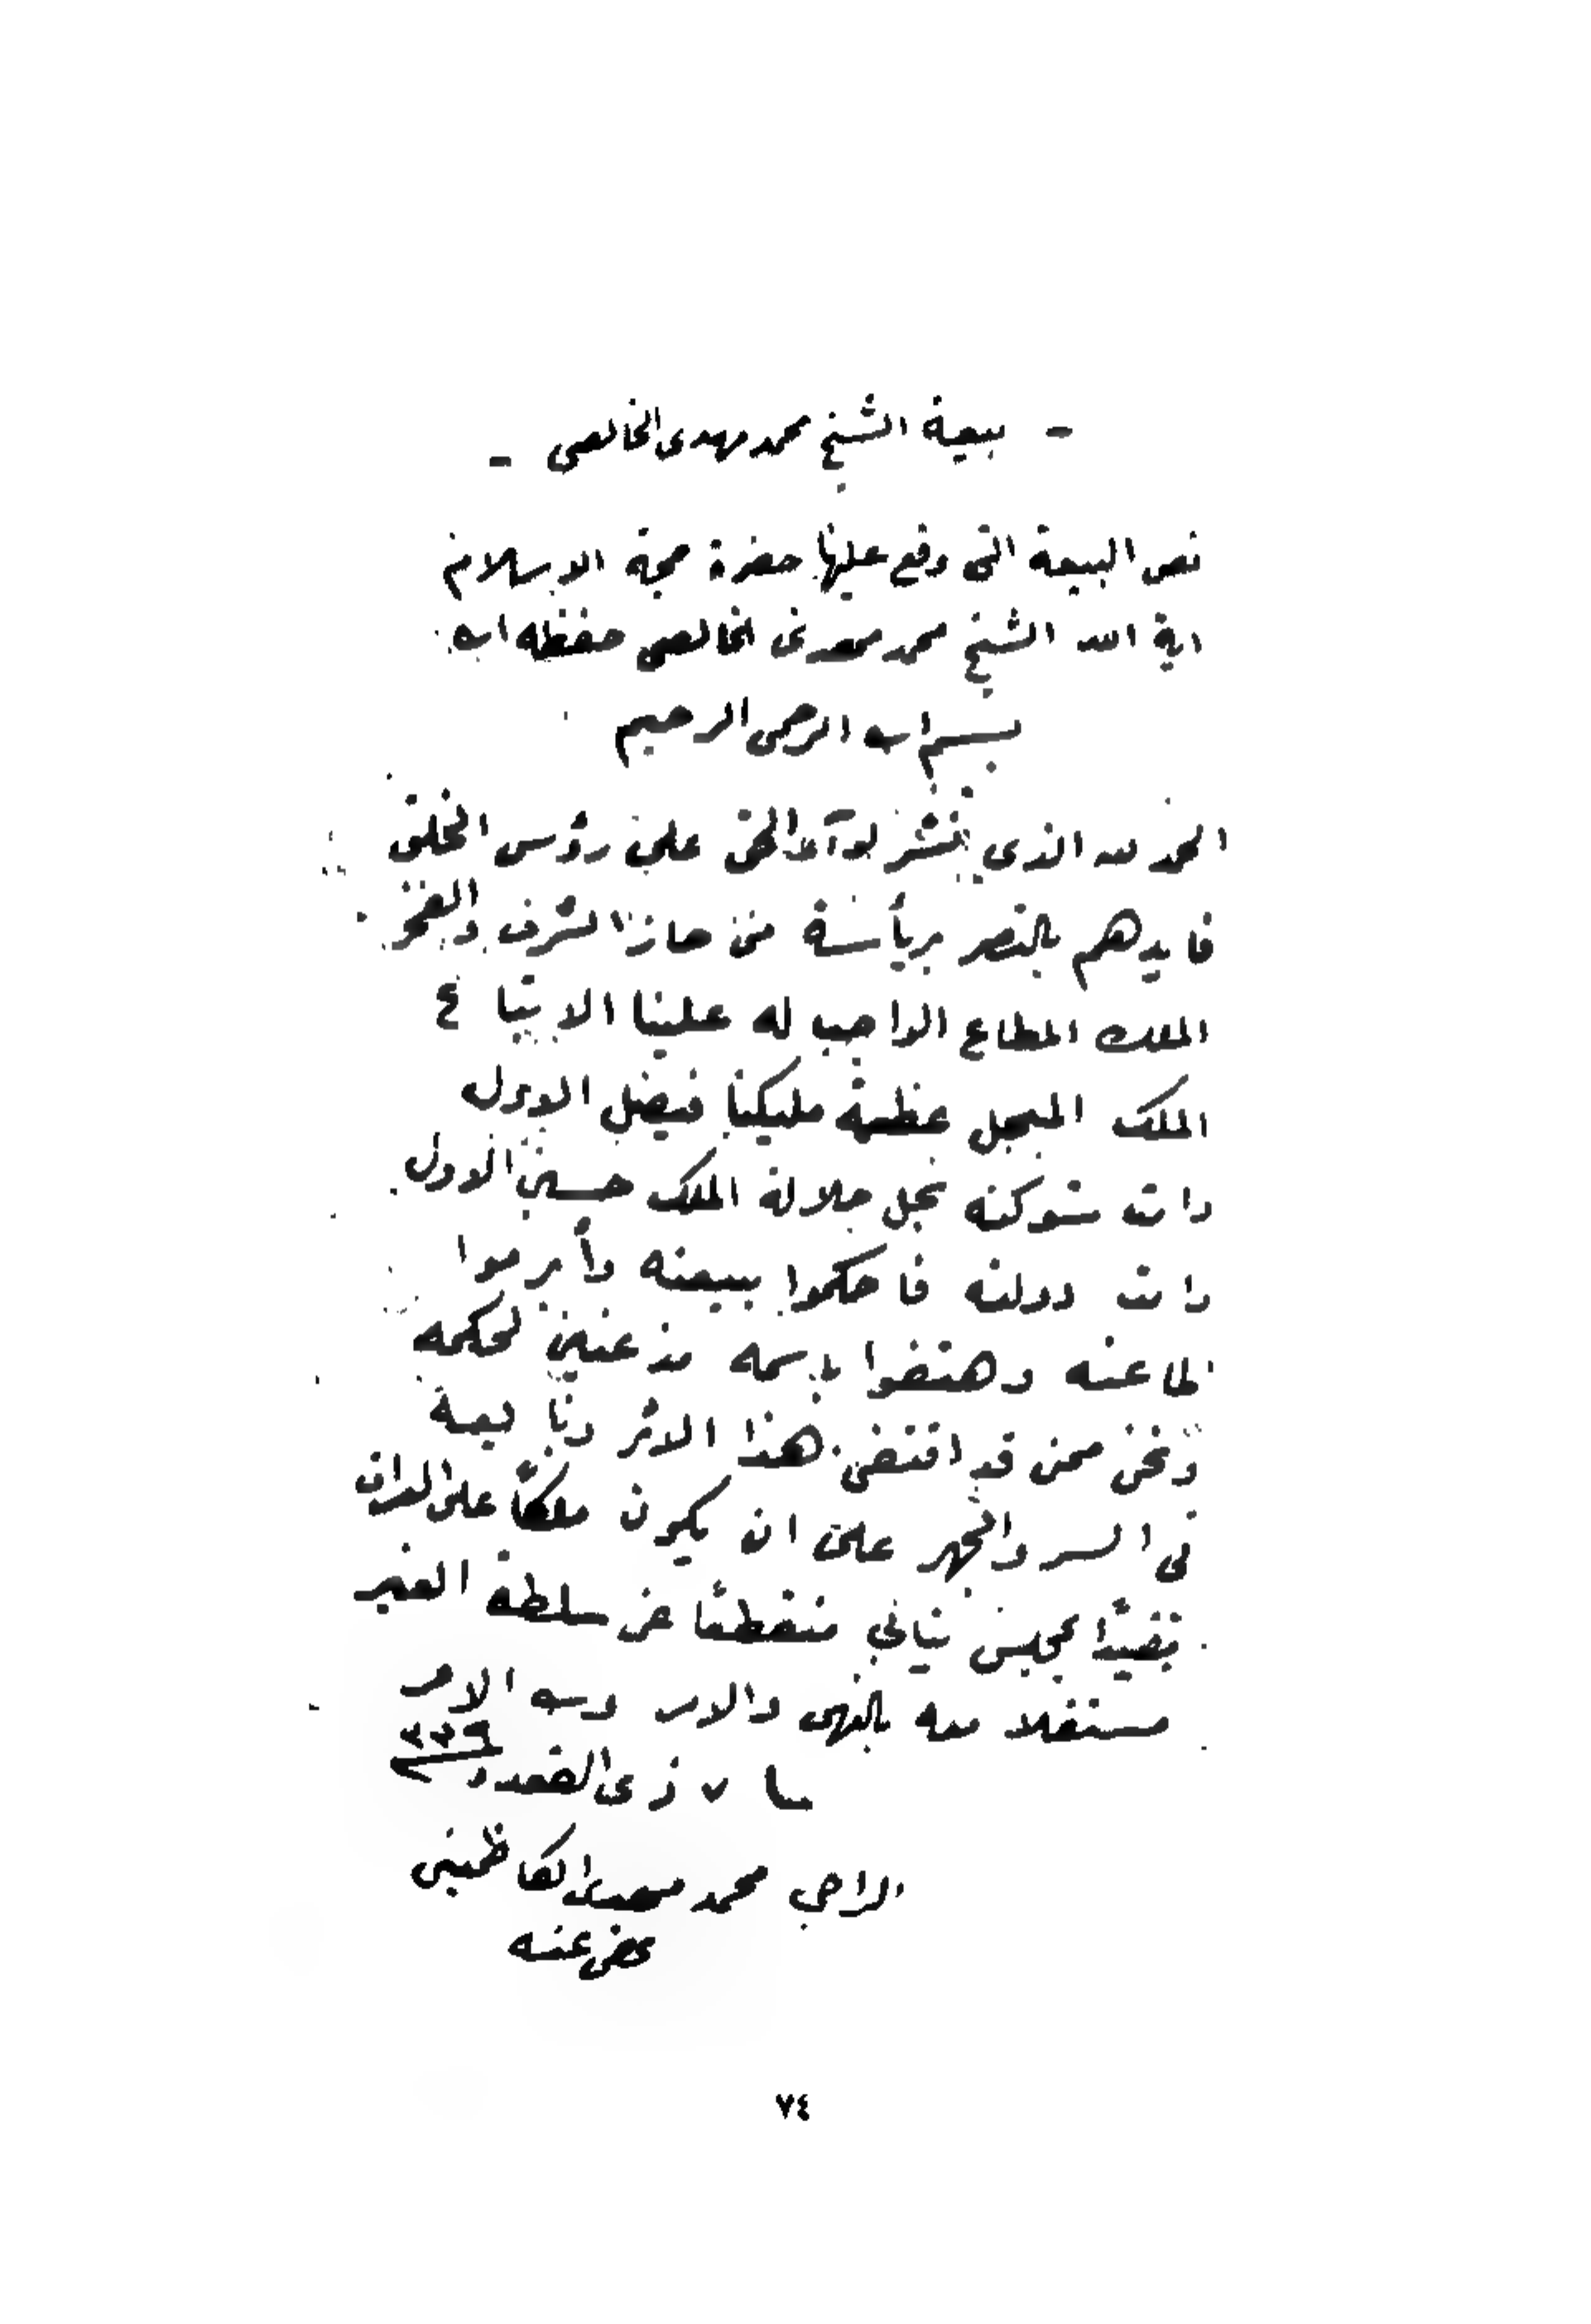 - بيعة الشيخ محمد مهدى الخالصي -
نص البيعة التى وقع عليها حضرة حجة الاسلام
اية الله الشيخ محمد مهدى الخالصي حفظه الله
بسم الله الرحمن الرحيم
الحمد لله الذى نشر لوآء الحق على رؤس الخلق
فايدهم بالنصر برأسة من حاز الشرف والفخر
الملك المطاع الواجب له علينا الاتباع
الملك المبجل عظمة مليكنا فيصل الاول
دامت شوكته نجل جلالة الملك حسين الاول
دامت دولته فاحكموا بيعته وأبرموا
طاعته وهتفوا باسمه مذعنين لحكمه
ونحن ممن قد اقتفى هذا الاثر وبايعه
فى السر والجهر على ان يكون ملكاً على العراق
مقيداً بمجلس نيابي منقطعاً عن سلطة الغير
مستقلا معه بالنهى والامر ولله الامر
٧ ذى القعدة ١٣٣٩
الراجي محمد مهدى الكاظمينى
عفى عنه
٧٤